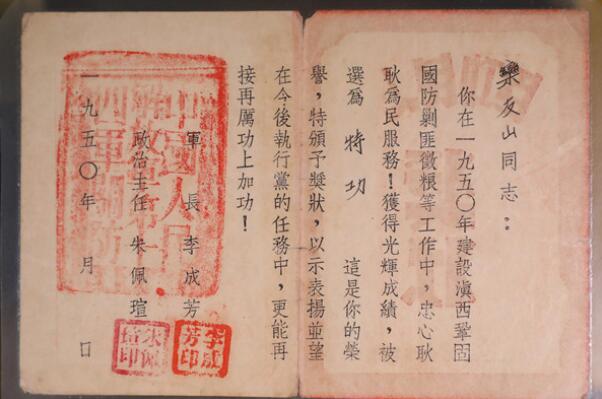 欒友山同志：
你在一九五〇年建設滇西鞏固
國防剿匪徵粮等工作中，忠心耿
耿為民服務！獲得光輝成績，被
選為 特功 這是你的榮
譽，特頒予獎狀，以示表揚並望
在今後執行黨的任務中，更能再
接再厲功上加功！
軍 長 李成芳
李成芳印
政治主任 朱佩瑄
朱佩瑄印
一九五〇年 月 日